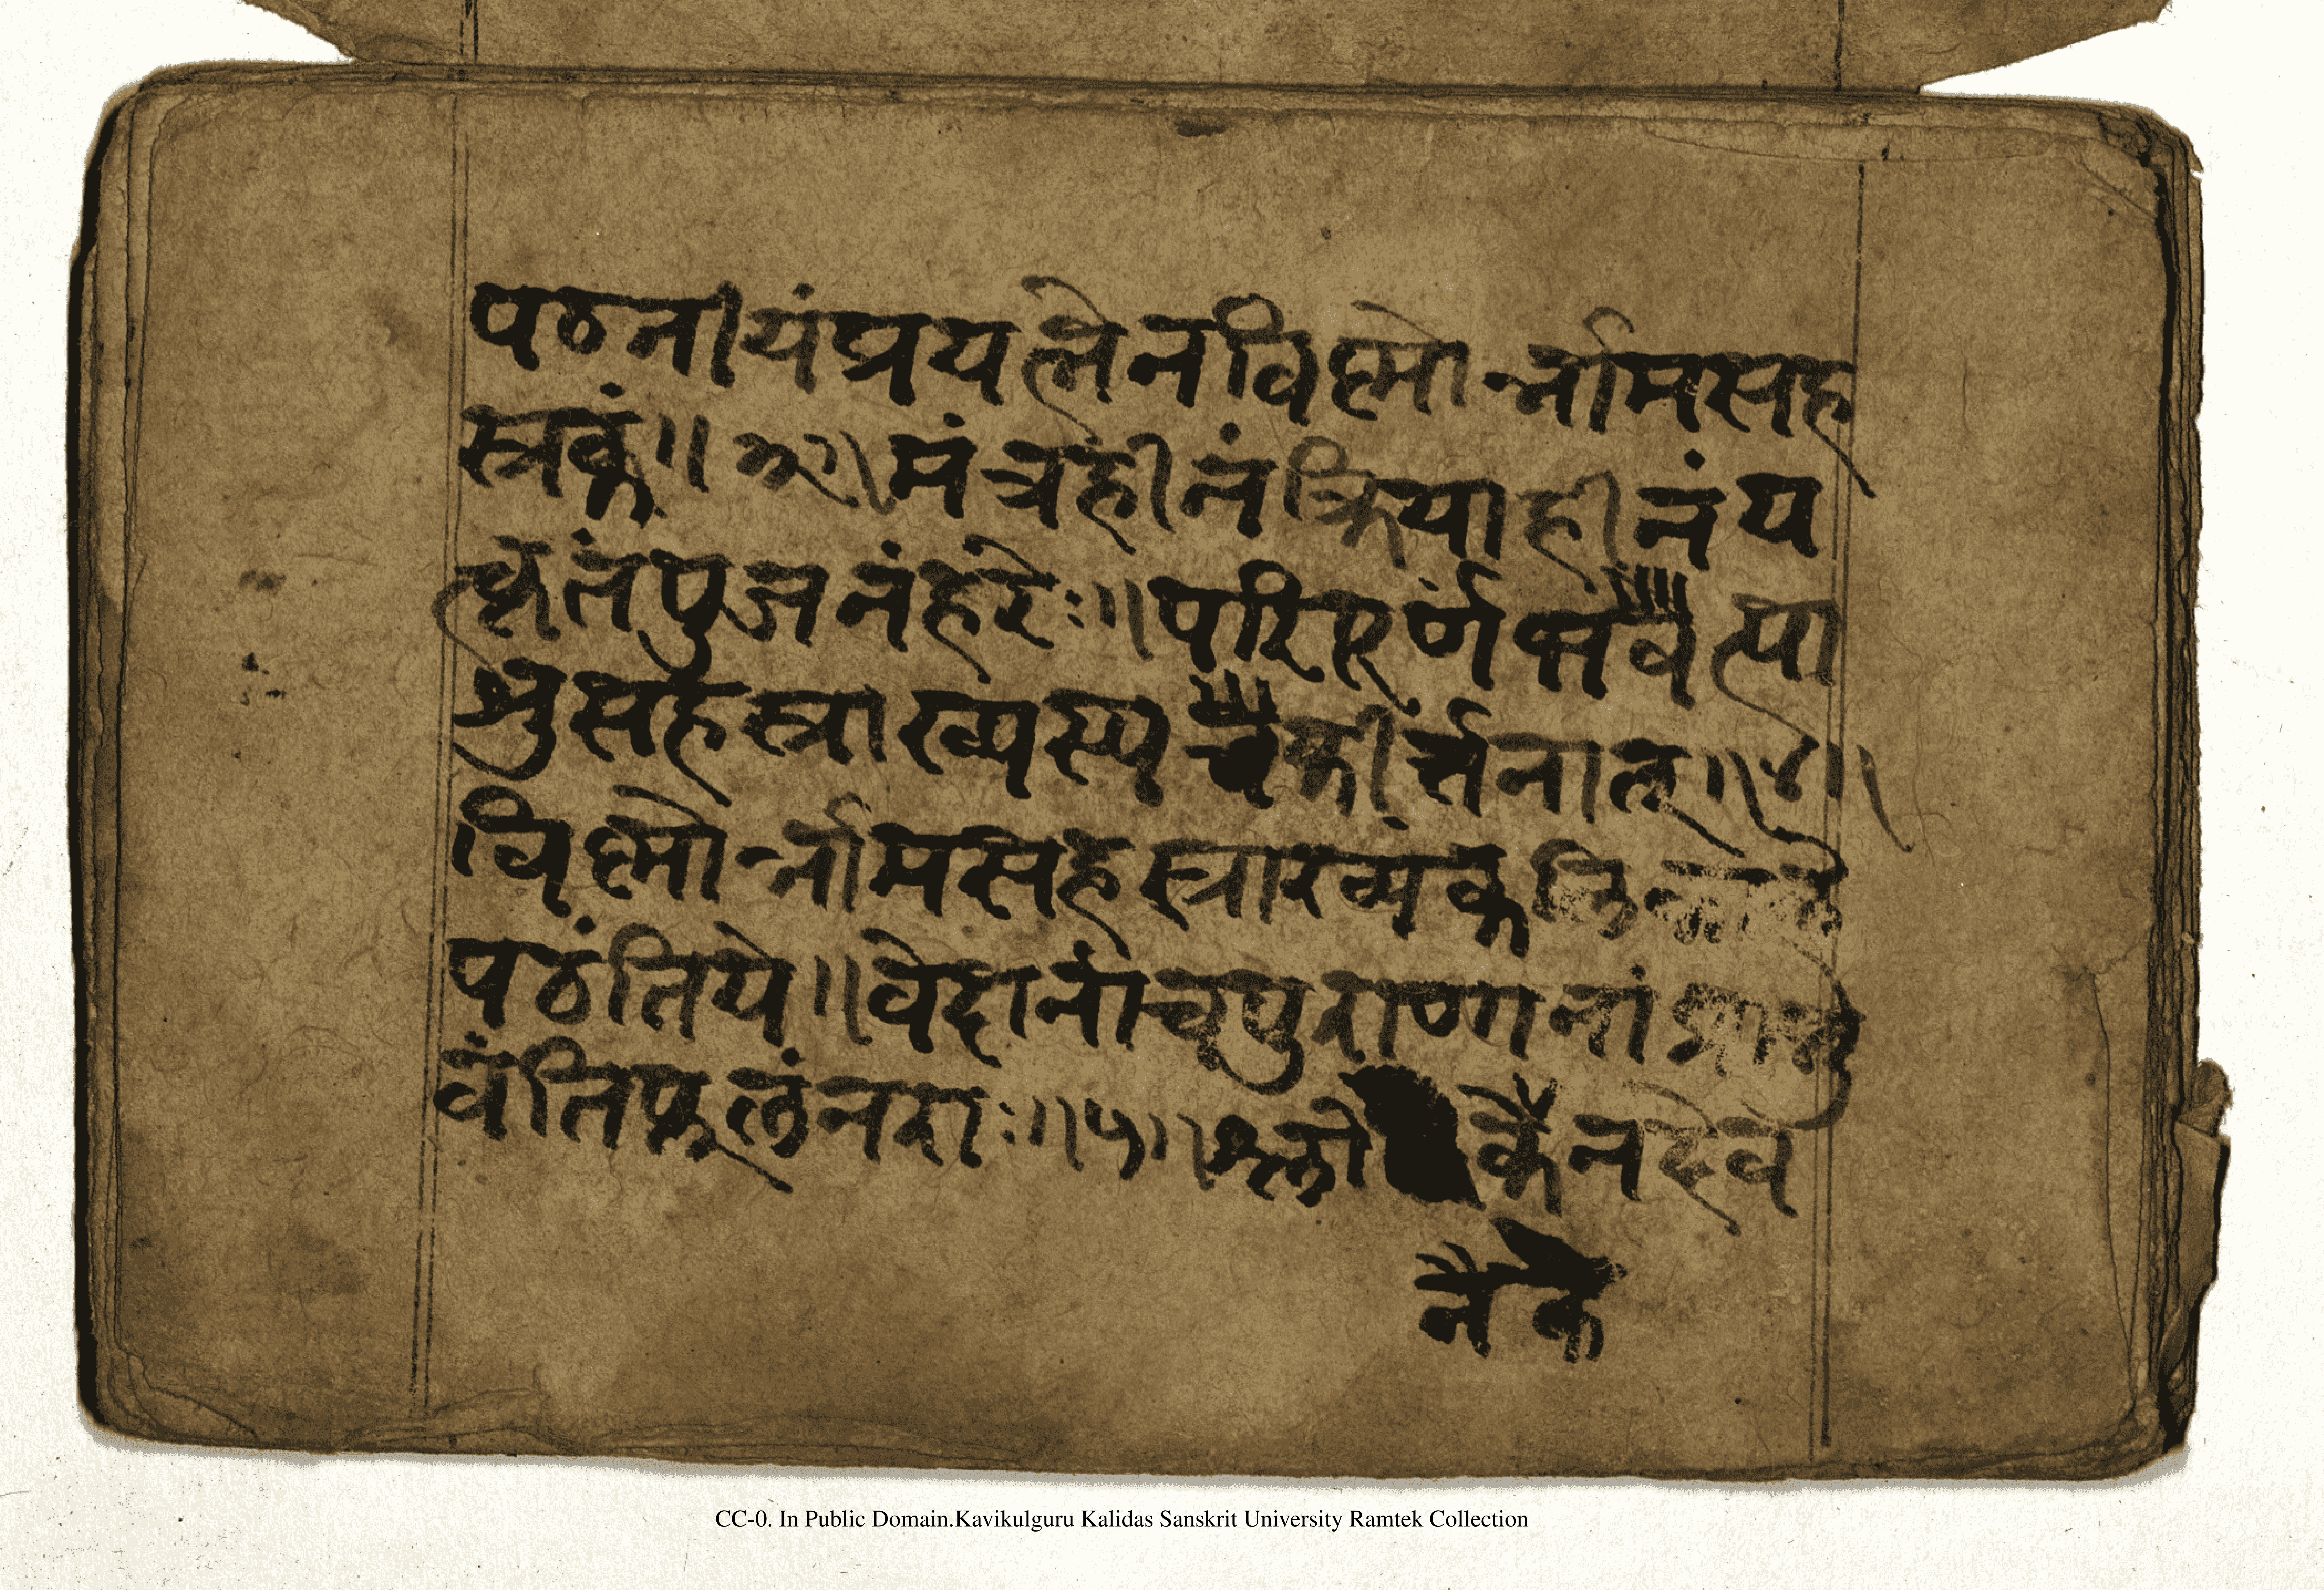 पठनीयंप्रयत्नेनविष्णोर्नामसह
स्त्रकं॥ ३॥मंत्रहीनंक्रियाहीनंय
त्कृतंपुजनंहरेः॥परिपूर्णंभवेत्पा
र्थसहस्त्राख्यस्यचैकीर्त्तनात्॥४॥
विष्णोर्नामसहस्त्राख्यंकलि
पठंतिये॥वेदानांचपुराणानां
वंतिफलंनराः॥५॥श्लो कैनदेव
नैके
CC-0. In Public Domain.Kavikulguru Kalidas Sanskrit University Ramtek Collection